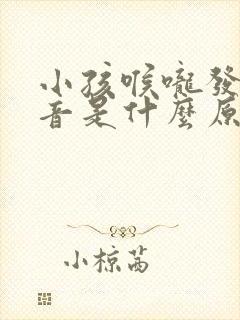 小孩喉嚨發
音是什麼原
小椋茜